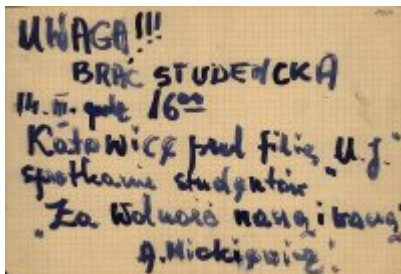 UWAGA!!!
BRAĆ STUDENCKA
14. III. godz 16⁰⁰
Katowice pred filią "U.J."
spotkanie studentów
"Za Wolność naszą i waszą"
A. Mickiewicz